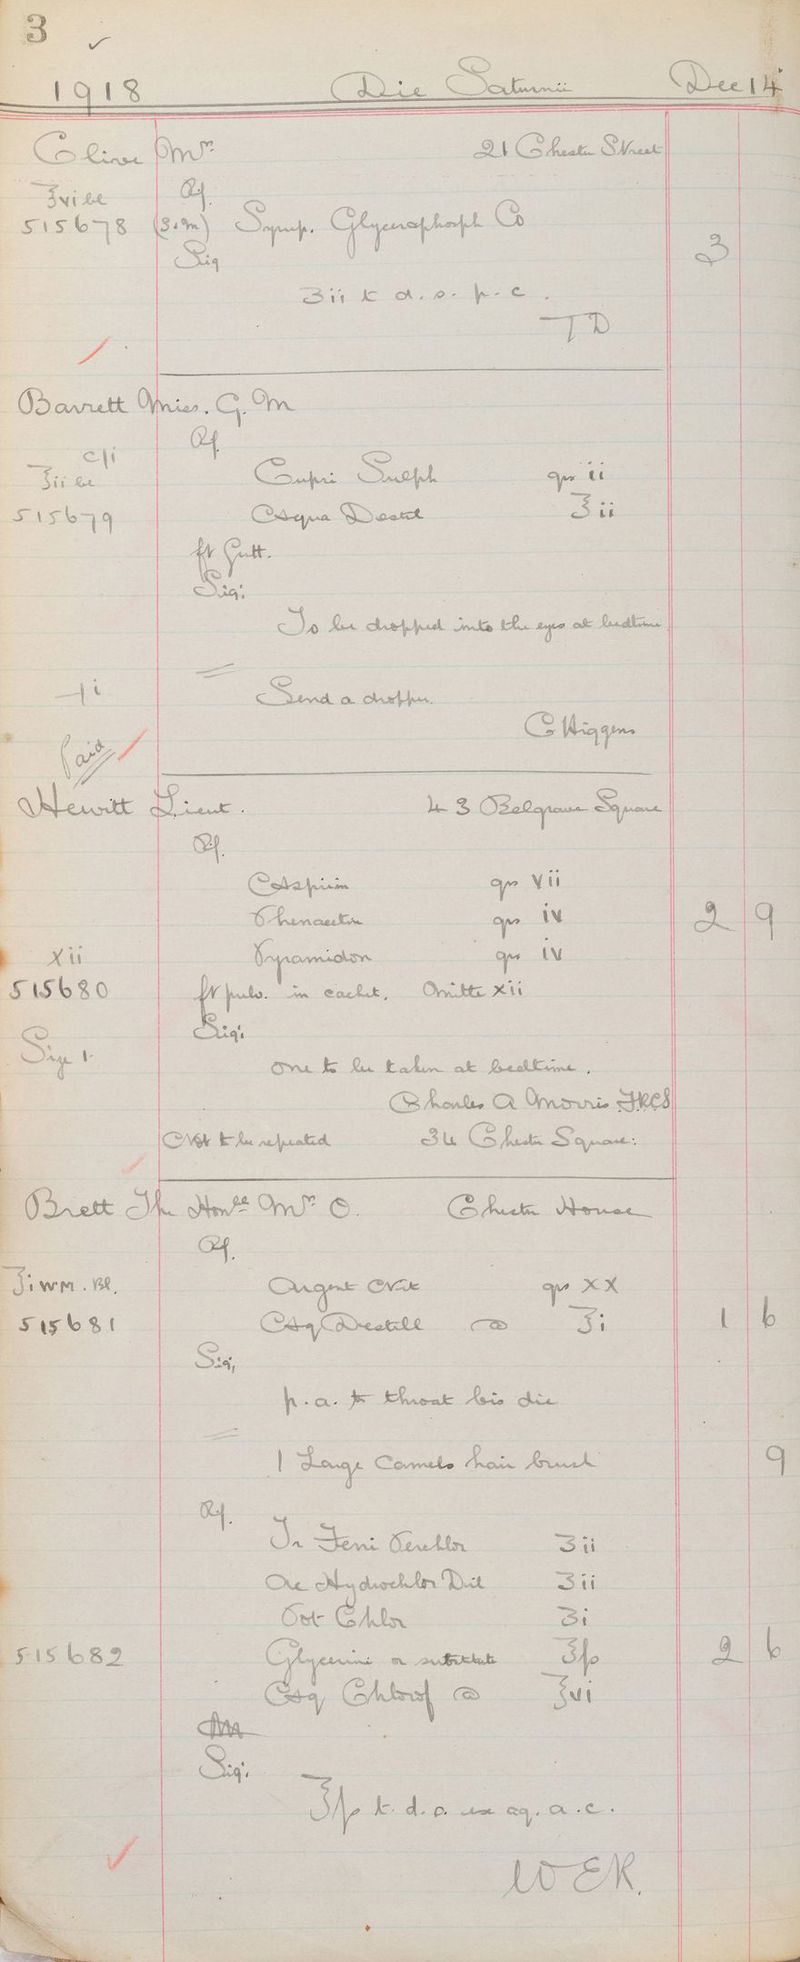 3
1918 Die Saturnii Dec 14
Clive Mrs 21 Chester Street
Rx.
℥vi bl
515678 (S.&M) Syrup. Glycerophosph Co 3
Sig
ʒii t d.s. p.c.
TD
Barrett Miss. G. M
Rx.
c/i
℥ii bl Cupri Sulph grs ii
515679 Aqua Destil ℥ii
ft Gutt.
Sig:
To be dropped into the eyes at bedtime
+i Send a dropper.
C Higgens
Paid
Hewitt Lieut. 43 Belgrave Square
Rx.
Aspirin grs vii
Phenacetin grs iv 2 9
xii Pyramidon grs iv
515680 ft pulv. in cachet. Omitte xii
Sig:
Size 1. one to be taken at bedtime.
Charles A Morris FRCS
Not to be repeated 34 Chester Square:
Brett The Honble Mrs O. Chester House
Rx.
℥i WM. Bl. Argent Nit grs XX
515681 Aq Destill @ ℥i 1 6
Sig,
p.a. to throat bis die
1 Large Camels hair brush 9
Rx.
Tr Ferri Perchlor ʒii
Ac Hydrochlor Dil ʒii
Pot Chlor ʒi
515682 Glycerini or substitute ℥ſs 2 6
Aq Chlorof @ ℥vi
M
Sig.
℥ſs t.d.s. ex aq. a.c.
WER.